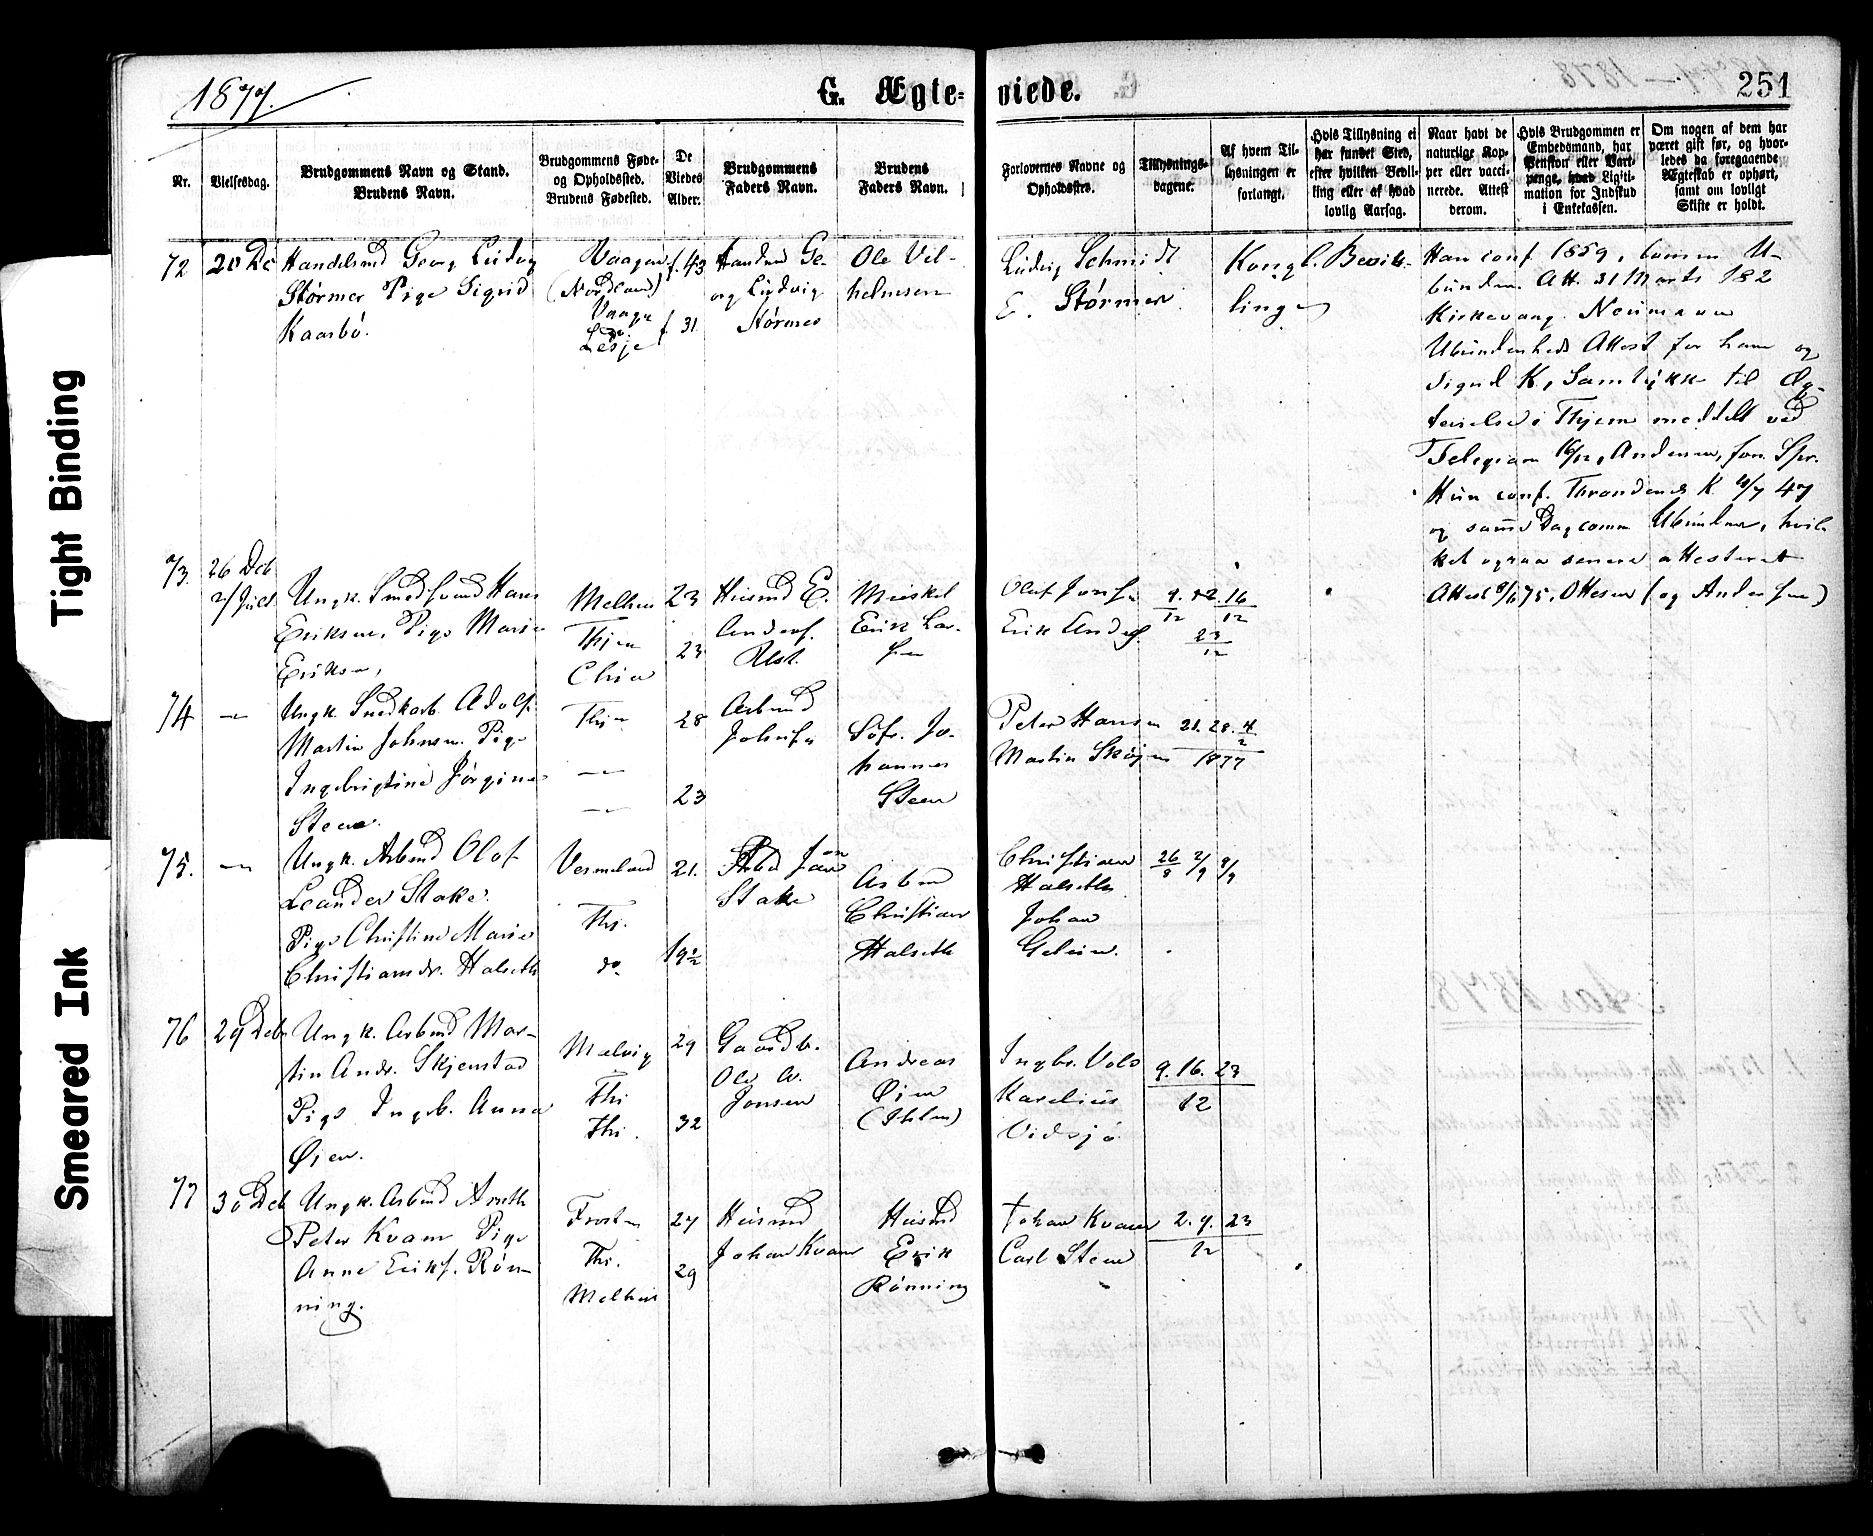 Tight Binding
Smeared Ink
1877.
G. Ægte-
viede.
251
Nr.
Vielsesdag.
Brudgommens Navn og Stand.
Brudens Navn.
Brudgommens Føde-
og Opholdssted.
Brudens Fødested.
De
Viedes
Alder.
Brudgommens
Faders Navn.
Brudens
Faders Navn.
Forlovernes Navne og
Opholdssted.
Tillysnings-
dagene.
Af hvem Til-
lysningen er
forlangt.
Hvis Tillysning ei
har fundet Sted,
efter hvilken Bevil-
ling eller af hvad
lovlig Aarsag.
Naar havt de
naturlige Kop-
per eller vacci-
nerede. Attest
derom.
Hvis Brudgommen er
Embedsmand, har
Pension eller Vart-
penge, hvad Ligiti-
mation for Indskud
i Enkekassen.
Om nogen af dem har
været gift før, og hvor-
ledes da foregaaende
Ægteskab er ophørt,
samt om lovligt
Skifte er holdt.
72
20 De
Handelsmd Georg Ludvig
Størmer Pige Sigrid
Kaarbö.
Vaagan
(Nordland)
Vaage
Lesje
f. 43
f 31
Ge-
org Ludvig
Størmer
Ole Vil-
helmsen
Ludvig Schmidt
E. Størmer
Kongl. Bevil-
linger
Han conf 1859, comm U-
bunden. Att. 31 Marts 182
Kirkesang. Neumann
Ubundenheds Attest for ham og
Sigrid K, Samtykke til Æg-
tevielse i Thjem meddelt ved
Telegram 16/12, Andersen, fon. Spr.
Hun conf. Throndenes K 4/7 47
og samme Dag comm Ubunden, hvil-
ket ogsaa senere attesteret
Attest 75, Ottesen (og Andersen)
73.
26 Deb
2/ Juel
Ungk. Smedsvend Hans
Eriksen, Pige Marie
Eriksen,
Melhus
Thjem
23
23
Husmd E.
Anders.
Erik Lar-
sen
Oluf Jonsen
Erik Anders.
9. 12. 16
12 12
23
12
74
—
Ungk. Snedkarb. Adolf
Martin Johnsen. Pige
Ingebrigtine Jørgine
Steen.
—
—
28
23
Arbmd
Johnsen
Søfr. Jo-
hannes
Steen
Peter Hansen
Martin Skøjen
21. 28. 4
2
1877
75.
—
Ungk. Arbmd Olof
Leander Stake.
Pige Christine Marie
Christiansdr. Halseth
Vermeland
Thj.
do
21.
19½
Jon
Stake
Arbmd
Christian
Halseth
Christian
Halseth
Johan
26
8
2/9 9/9
76
29 Deb
Ungk. Arbmd Mar-
tin Andr. Skjenstad
Pige Ingeb. Anna
Øien.
Malvig
Thi
Thi.
29
32
Gaardb.
Ole A.
Jonsen
Andreas
Øien
(Ihlen)
Ingbr. Vols
Karelius
Vidsjø
9. 16. 23
12
77
30 Deb
Ungk. Arbmd Arnth
Peter Kvam Pige
Anne Eriks. Røn-
ning.
Frosten
Thi.
Melhus
27
29
Husmd
Johan Kvam
Husmd
Erik
Rönning
Johan Kvam
Carl Steen
2. 9. 23
12